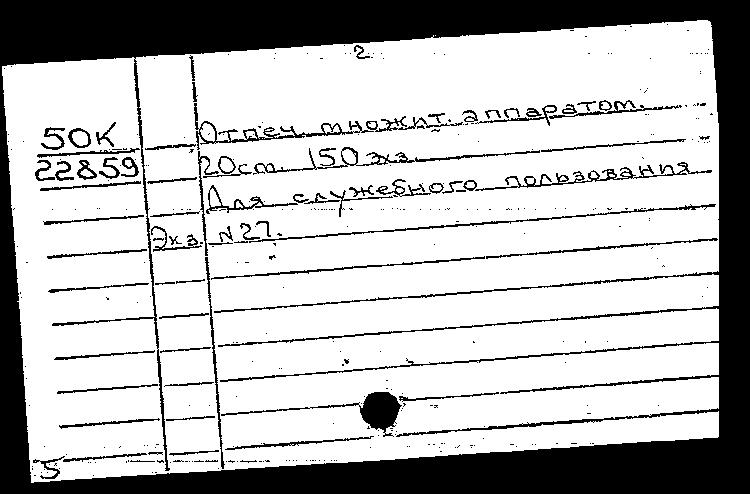 2
50К Отпеч. множит. аппаратом.
22859 20ст. 150 экз.
Для служебного пользования
Экз. N27.
5